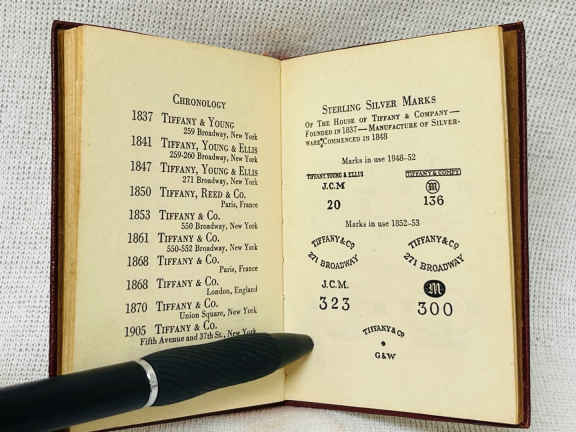 CHRONOLOGY
1837 TIFFANY & YOUNG
259 Broadway, New York
1841 TIFFANY, YOUNG & ELLIS
259-260 Broadway, New York
1847 TIFFANY, YOUNG & ELLIS
271 Broadway, New York
1850 TIFFANY, REED & CO.
Paris, France
1853 TIFFANY & CO.
550 Broadway, New York
1861 TIFFANY & CO.
550-552 Broadway, New York
1868 TIFFANY & CO.
Paris, France
1868 TIFFANY & CO.
London, England
1870 TIFFANY & CO.
Union Square, New York
1905 TIFFANY & CO.
Fifth Avenue and 37th St., New York
STERLING SILVER MARKS
OF THE HOUSE OF TIFFANY & COMPANY—
FOUNDED IN 1837—MANUFACTURE OF SILVER-
WARE COMMENCED IN 1848
Marks in use 1848-52
TIFFANY, YOUNG & ELLIS
J.C.M
20
TIFFANY & COMPY
M
136
Marks in use 1852-53
TIFFANY & CO
271 BROADWAY
J.C.M.
323
TIFFANY & CO
271 BROADWAY
M
300
TIFFANY & CO
G&W